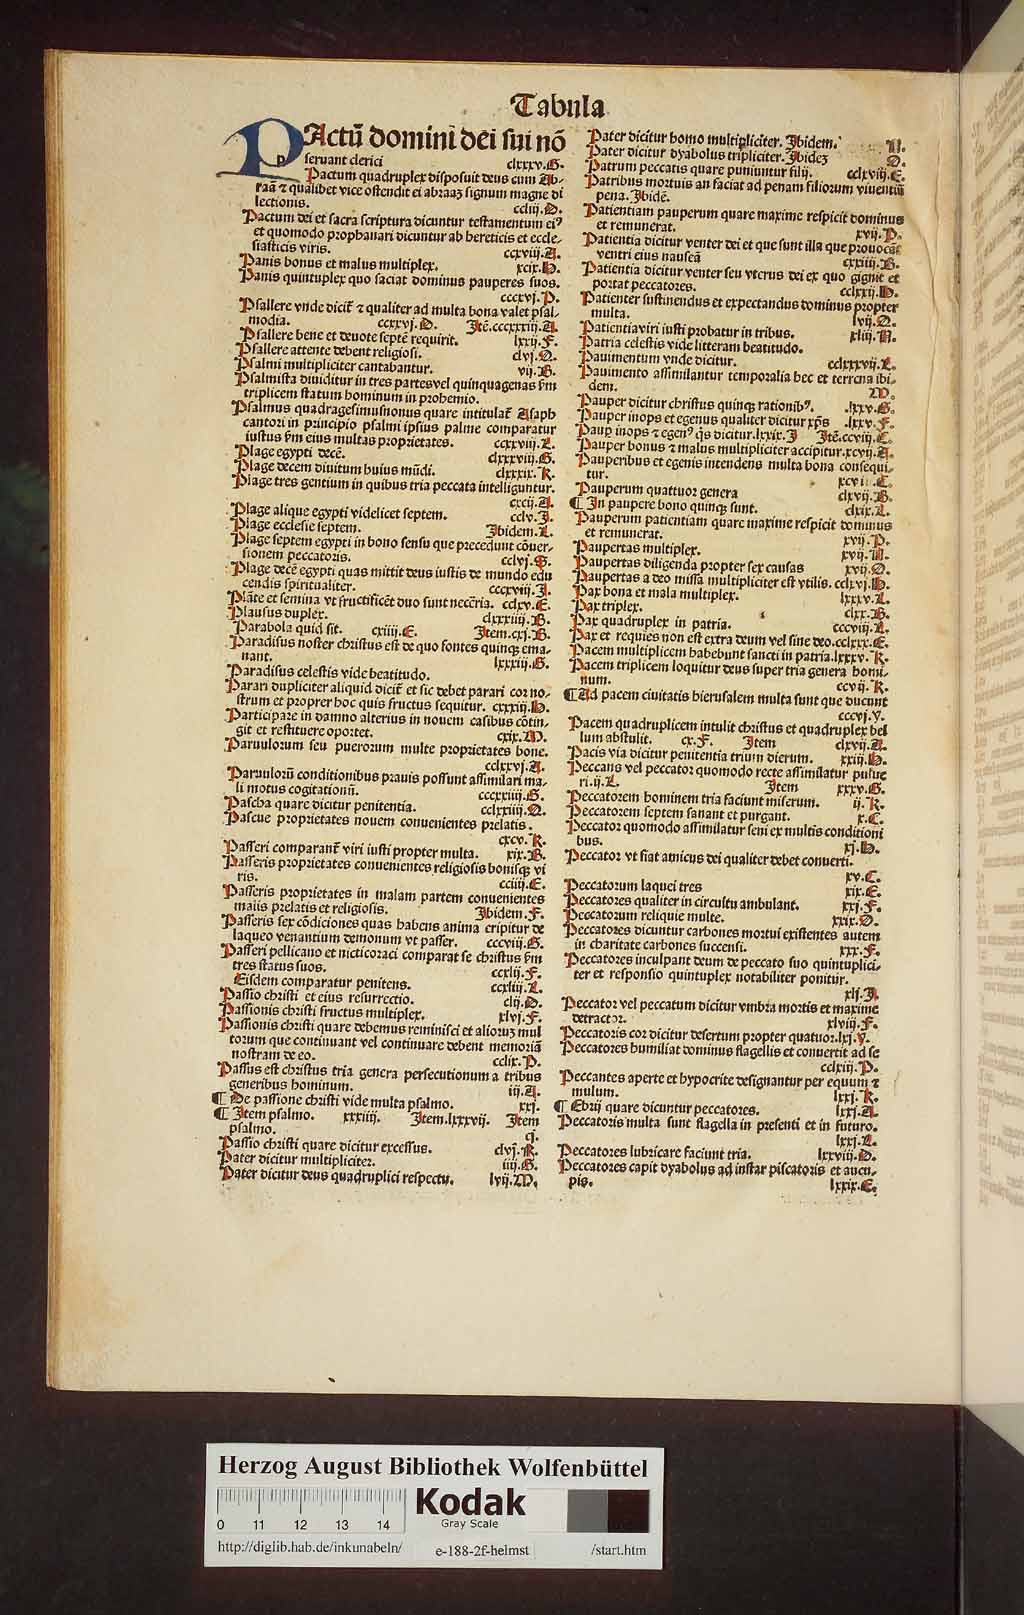 Tabula
PActū domini dei sui nō
seruant clerici clxxv.G.
Pactum quadruplex disposuit deus cum Ab-
raā ⁊ qualibet vice ostendit ei abraaꝫ signum magne di
lectionis. ccliij.D.
Pactum dei et sacra scriptura dicuntur testamentum eiꝰ
et quomodo prophanari dicuntur ab hereticis et eccle-
siasticis viris. ccxviij.A.
Panis bonus et malus multiplex. xcix.H.
Panis quintuplex quo saciat dominus pauperes suos.
cccxvj.P.
Psallere vnde dicit̄ ⁊ qualiter ad multa bona valet psal-
modia. ccxxvj.D. Itē.cccxxxiij.A.
Psallere bene et deuote septē requirit. lxxij.F.
Psallere attente debent religiosi. clvj.O.
Psalmi multipliciter cantabantur. vij.B.
Psalmista diuiditur in tres partes vel quinquagenas ẜm
triplicem statum hominum in prohemio.
Psalmus quadragesimusnonus quare intitulat̄ Asaph
cantori in principio psalmi ipsius palme comparatur
iustus ẜm eius multas proprietates. ccxxviij.L.
Plage egypti decē. clxxxviij.G.
Plage decem diuitum huius mūdi. clxxxix.K.
Plage tres gentium in quibus tria peccata intelliguntur.
cxcij.A.
Plage alique egypti videlicet septem. cclv.I.
Plage ecclesie septem. Ibidem.L.
Plage septem egypti in bono sensu que precedunt cōuer-
sionem peccatoris. cclvj.G.
Plage decē egypti quas mittit deus iustis de mundo edu
cendis spiritualiter. cccxviij.I.
Plāte et semina vt fructificēt duo sunt necc̄ria. cclxv.E.
Plausus duplex. clxxxiiij.B.
Parabola quid sit. cxiiij.E. Item.cxj.B.
Paradisus noster christus est de quo fontes quinqꝫ ema-
nant. lxxxiij.G.
Paradisus celestis vide beatitudo.
Parari dupliciter aliquid dicit̄ et sic debet parari cor no-
strum et proprer hoc quis fructus sequitur. cxxxiij.H.
Participare in damno alterius in nouem casibus cōtin-
git et restituere oportet. cxix.M.
Paruulorum seu puerorum multe proprietates bone.
cclxxvj.A.
Paruulorū conditionibus prauis possunt assimilari ma-
li motus cogitationū. cccxxiiij.G.
Pascha quare dicitur penitentia. cclxxiiij.O.
Pascue proprietates nouem conuenientes prelatis.
cxcv.K.
Passeri comparant̄ viri iusti propter multa. xix.B.
Passeris proprietates conuenientes religiosis bonisqꝫ vi
ris. cciiij.E.
Passeris proprietates in malam partem conuenientes
malis prelatis et religiosis. Ibidem.F.
Passeris sex cōdiciones quas habens anima eripitur de
laqueo venantium demonum vt passer. cccviij.G.
Passeri pellicano et nicticoraci comparat se christus ẜm
tres status suos. ccxlij.F.
Eisdem comparatur penitens. ccxliij.L.
Passio christi et eius resurrectio. clij.D.
Passionis christi fructus multiplex. xlvj.F.
Passionis christi quare debemus reminisci et alioruꝫ mul
torum que continuant vel continuare debent memoriā
nostram de eo. cclix.P.
Passus est christus tria genera persecutionum a tribus
generibus hominum. iij.A.
¶ De passione christi vide multa psalmo. xxj.
¶ Item psalmo. xxxiiij. Item.lxxxvij. Item
psalmo. cj.
Passio christi quare dicitur excessus. clvj.K.
Pater dicitur multipliciter. iiij.G.
Pater dicitur deus quadruplici respectu. lvij.M.
Pater dicitur homo multipliciter. Ibidem. N.
Pater dicitur dyabolus tripliciter. Ibideꝫ O.
Patrum peccatis quare puniuntur filij. cclxviij.E.
Patribus mortuis an faciat ad penam filiorum viuentiū
pena. Ibidē.
Patientiam pauperum quare maxime respicit dominus
et remunerat. xvij.P.
Patientia dicitur venter dei et que sunt illa que prouocāt
ventri eius nauseā cxxiiij.B.
Patientia dicitur venter seu vterus dei ex quo gignit et
portat peccatores. cclxxij.H.
Patienter sustinendus et expectandus dominus propter
multa. lvij.O.
Patientia viri iusti probatur in tribus. xliij.N.
Patria celestis vide litteram beatitudo.
Pauimentum vnde dicitur. cclxxxvij.L.
Pauimento assimilantur temporalia hec et terrena ibi-
dem. M.
Pauper dicitur christus quinqꝫ rationibꝰ. .lxxv.G.
Pauper inops et egenus qualiter dicitur xp̄s .lxxv.F.
Paup̲ inops ⁊ egenꝰ q̄s dicitur.lxxix.I Itē.ccviij.C.
Pauper bonus ⁊ malus multipliciter accipitur.xcvij.A.
Pauperibus et egenis intendens multa bona consequi-
tur. xcvij.C.
Pauperum quattuor genera clxvij.B.
¶ In paupere bono quinqꝫ sunt. clxix.L.
Pauperum patientiam quare maxime respicit dominus
et remunerat. xvij.P.
Paupertas multiplex. xvij.N.
Paupertas diligenda propter sex causas xvij.O.
Paupertas a deo missa multipliciter est vtilis. cclxvj.H.
Pax bona et mala multiplex. lxxxv.L.
Pax triplex. clxx.B.
Pax quadruplex in patria. cccviij.L.
Pax et requies non est extra deum vel sine deo.cclxxx.E.
Pacem multiplicem habebunt sancti in patria.lxxxv.K.
Pacem triplicem loquitur deus super tria genera homi-
num. ccvij.K.
¶ Ad pacem ciuitatis hierusalem multa sunt que ducunt
cccvj.V.
Pacem quadruplicem intulit christus et quadruplex bel
lum abstulit. cx.F. Item clxvij.A.
Pacis via dicitur penitentia trium dierum. xxiij.H.
Peccans vel peccator quomodo recte assimilatur pulue
ri.ij.L. Item xxxv.G.
Peccatorem hominem tria faciunt miserum. ij.K.
Peccatorem septem sanant et purgant. x.C.
Peccator quomodo assimilatur seni ex multis conditioni
bus. xj.H.
Peccator vt fiat amicus dei qualiter debet conuerti.
xv.C.
Peccatorum laquei tres xix.E.
Peccatores qualiter in circuitu ambulant. xxj.F.
Peccatorum reliquie multe. xxix.O.
Peccatores dicuntur carbones mortui existentes autem
in charitate carbones succensi. xxx.F.
Peccatores inculpant deum de peccato suo quintuplici-
ter et responsio quintuplex notabiliter ponitur.
xlj.I.
Peccator vel peccatum dicitur vmbra mortis et maxime
detractor. xlviij.F.
Peccatoris cor dicitur desertum propter quatuor.lxj.V.
Peccatores humiliat dominus flagellis et conuertit ad se
cclxiij.P.
Peccantes aperte et hypocrite designantur per equum ⁊
mulum. lxxj.K.
¶ Ebrij quare dicuntur peccatores. lxxj.A.
Peccatoris multa sunt flagella in presenti et in futuro.
lxxj.L.
Peccatores lubricare faciunt tria. lxxviij.D.
Peccatores capit dyabolus ad instar piscatoris et aucu-
pis. lxxix.E.
Herzog August Bibliothek Wolfenbüttel
Kodak
Gray Scale
0 11 12 13 14
http://diglib.hab.de/inkunabeln/ e-188-2f-helmst /start.htm